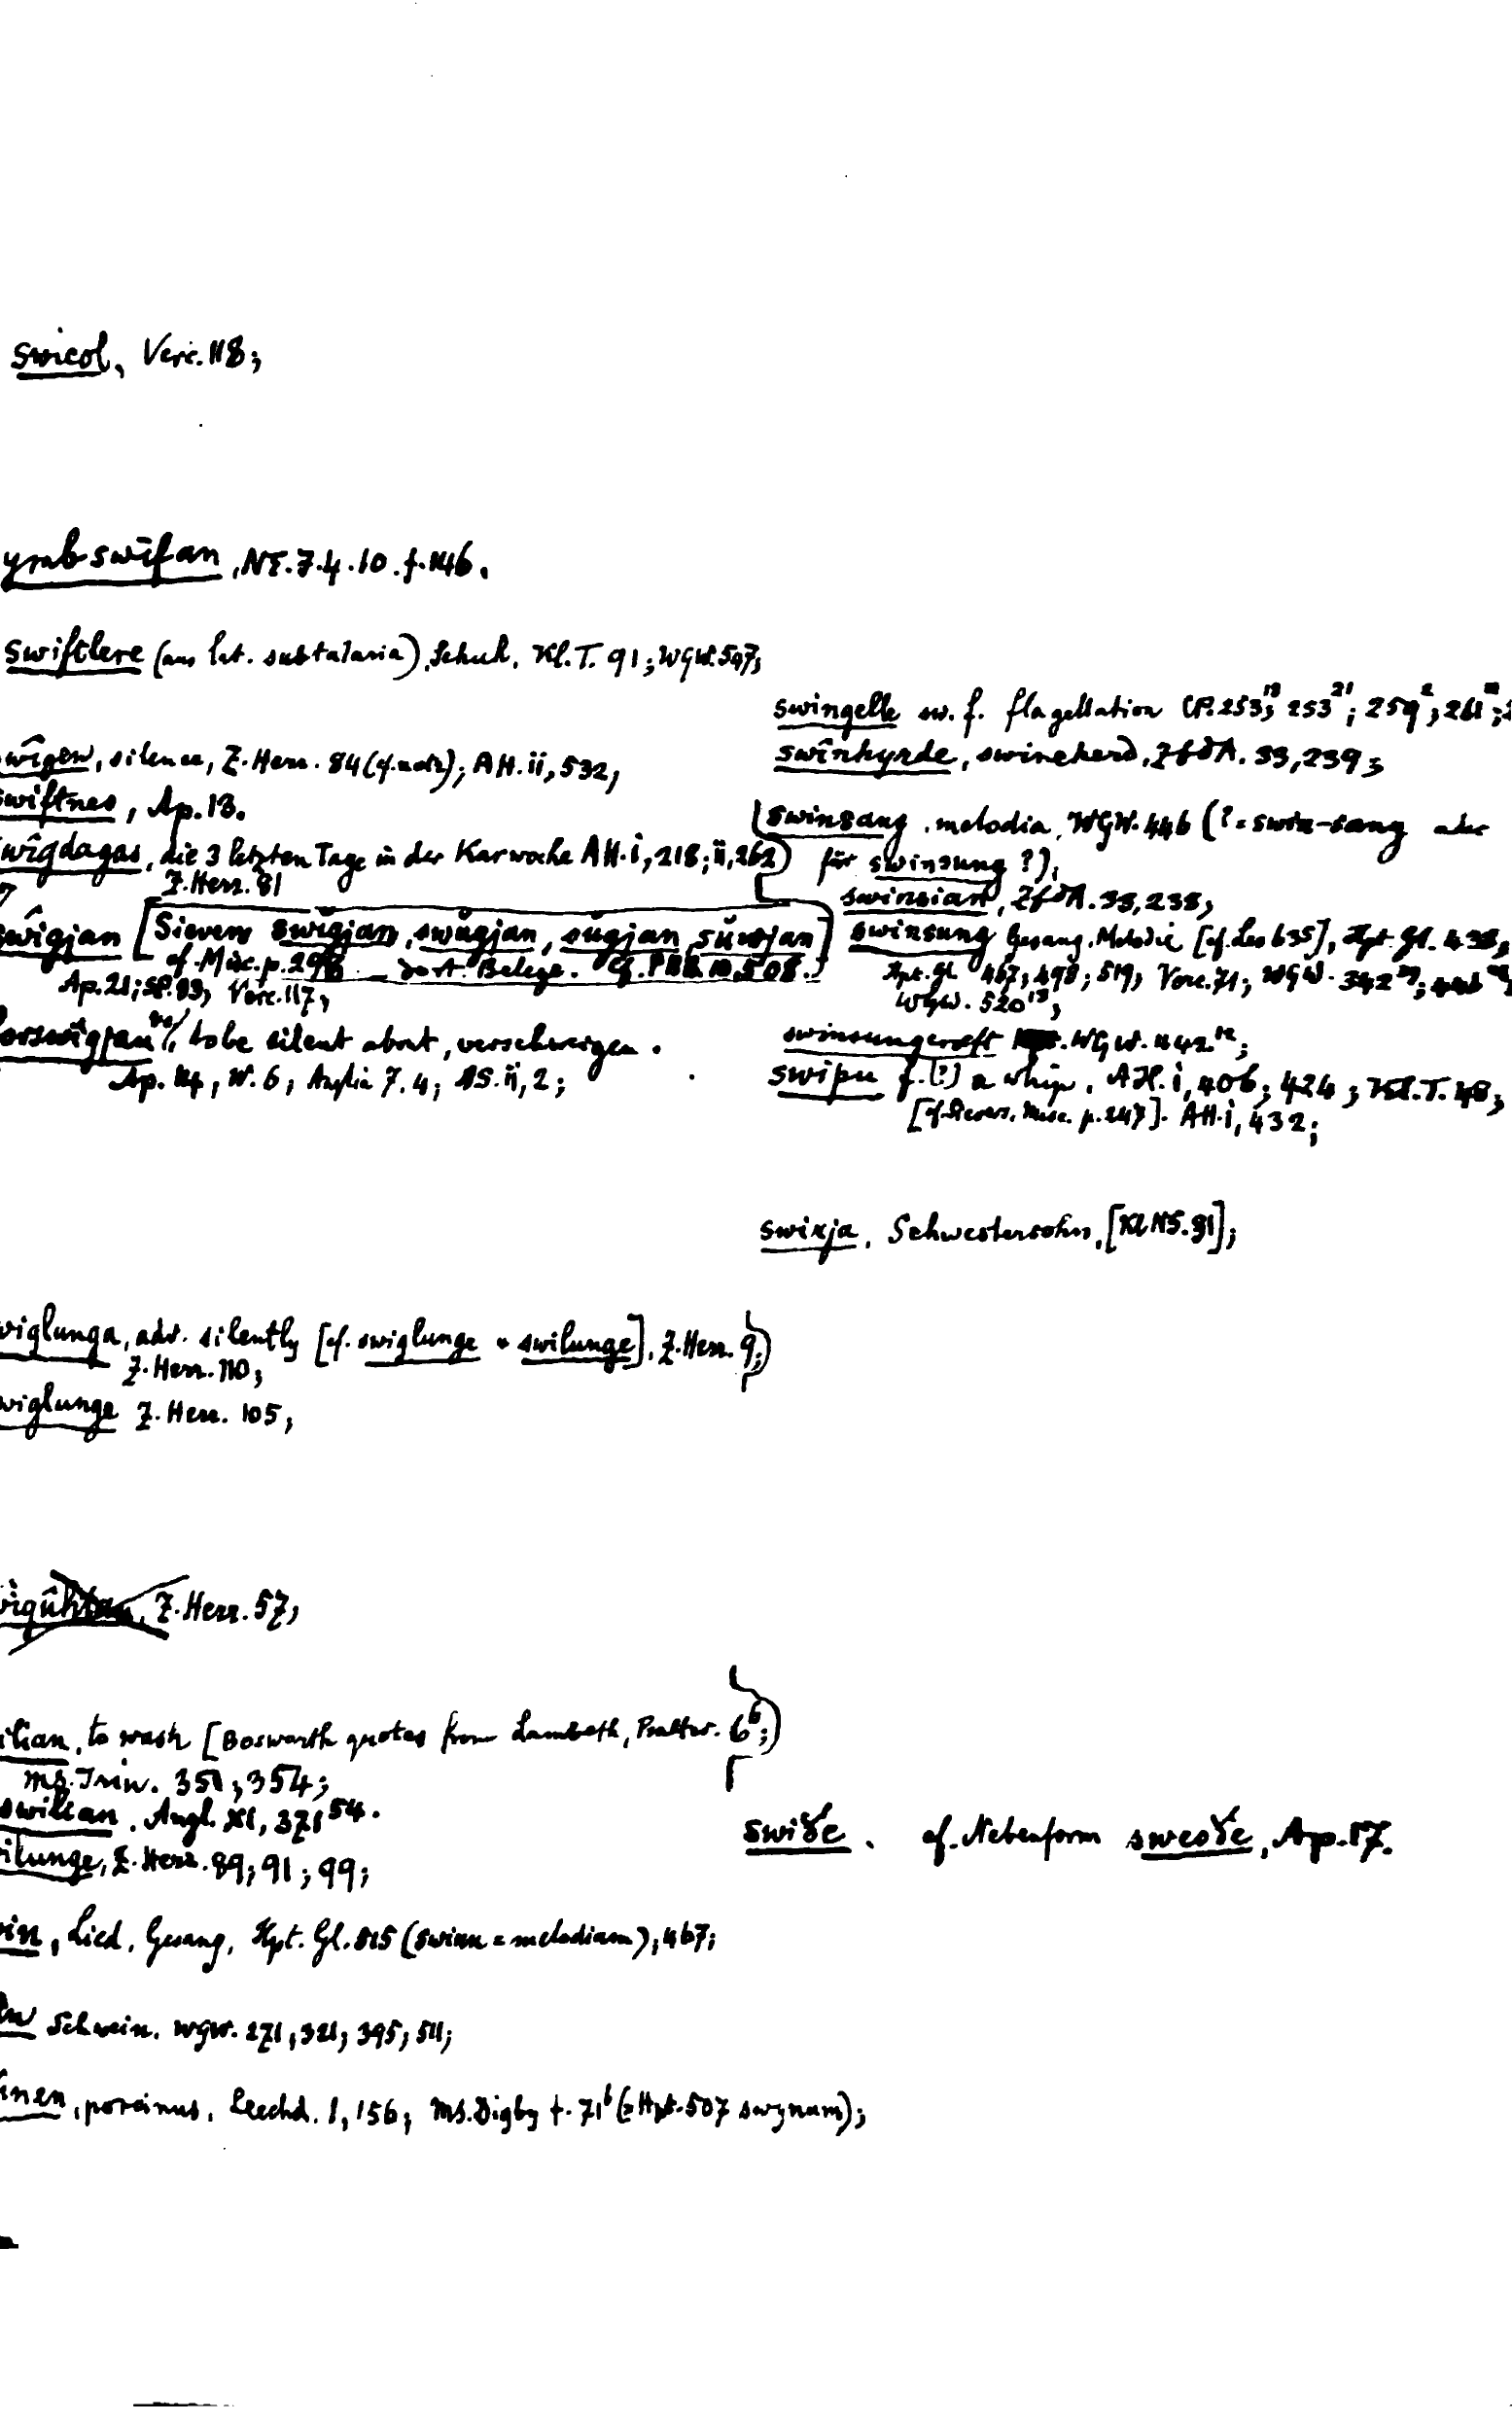 swicol, Verc. 118;
ymbswīfan, NE. 7. 4. 10. f. 146.
swiftlere (aus lat. subtalaria), Schuh, Kl. T. 91; WGW. 597;
wîgen, silence, Z. Herr. 84 (cf. note); AH. ii, 532,
swiftnes, Ap. 13.
wîgdagas, die 3 letzten Tage in der Karwoche AH. i, 218; ii, 262
Z. Herr. 81
wîgjan [Sievers swīgjan, swugjan, sugjan, suwjan]
cf. Misc. p. 298 dort Belege. Cf. PBB 10, 508.
Ap. 21; SP. 83, Verc. 117,
forswîgjan, to be silent about, verschweigen.
Ap. 14, W. 6, Anglia 7. 4; AS. ii, 2;
wiglunga, adv. silently [cf. swiglunge + swilunge], Z. Herr. 9;
Z. Herr. 110;
wiglunge Z. Herr. 105,
Z. Herr. 57,
ilian, to wash [Bosworth quotes from Lambeth, Psalter. 6⁶;
MS. Trin. 351, 354;
swilian, Angl. XI, 371⁵⁴.
ilunge, Z. Herr. 89; 91; 99;
in, Lied, Gesang, Hpt. Gl. 515 (swinn = melodiam); 467;
Schwein. WGW. 271, 321, 395, 511;
inen, porcinus, Leechd. 1, 156; MS. Digby f. 71ᵇ (= Hpt. 507 swynum);
swingelle sw. f. flagellation CP. 253¹³; 253²¹; 259²; 261
swînhyrde, swineherd, ZfdA. 33, 239;
swinsang, melodia, WGW. 446 (? = swin-sang oder
für swinsung ?),
swinsian, ZfdA. 33, 238,
swinsung Gesang, Melodie [cf. Leo 635], Hpt. Gl. 438,
Hpt. Gl. 467; 498; 519, Verc. 71; WGW. 342²⁹; 446
WGW. 520¹⁸,
swinsungcræft WGW. 442.¹²;
swipu f. (?) a whip, AH. i, 406; 424; Kl. T. 48;
[cf. Sievers, Misc. p. 247]. AH. i, 432;
swixja, Schwestersohn, [Kl NS. 31];
swiðe. cf. Nebenform sweoðe, Ap. 17.